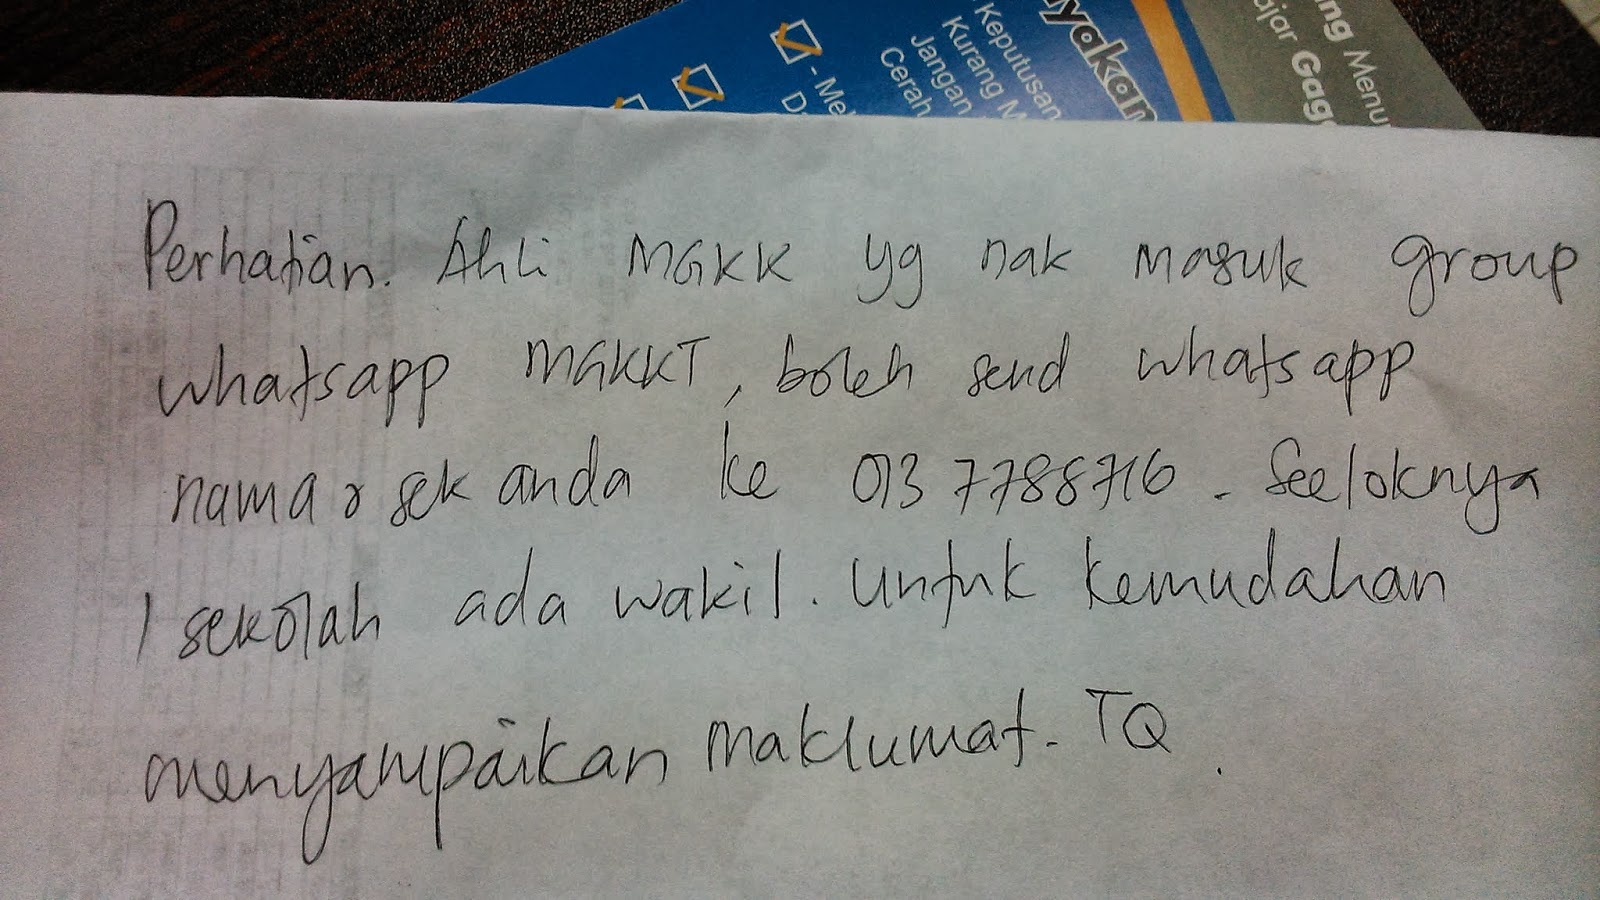 yakan
Keputusan
Kurang M
Jangan
Cerah
- Me
D
ing Menu
ajar Gag
Perhatian. Ahli MGKK yg nak masuk group
whatsapp MGKKT, boleh send whatsapp
nama & sek anda ke 013 7788716. Seeloknya
1 sekolah ada wakil. Untuk kemudahan
menyampaikan maklumat. TQ.